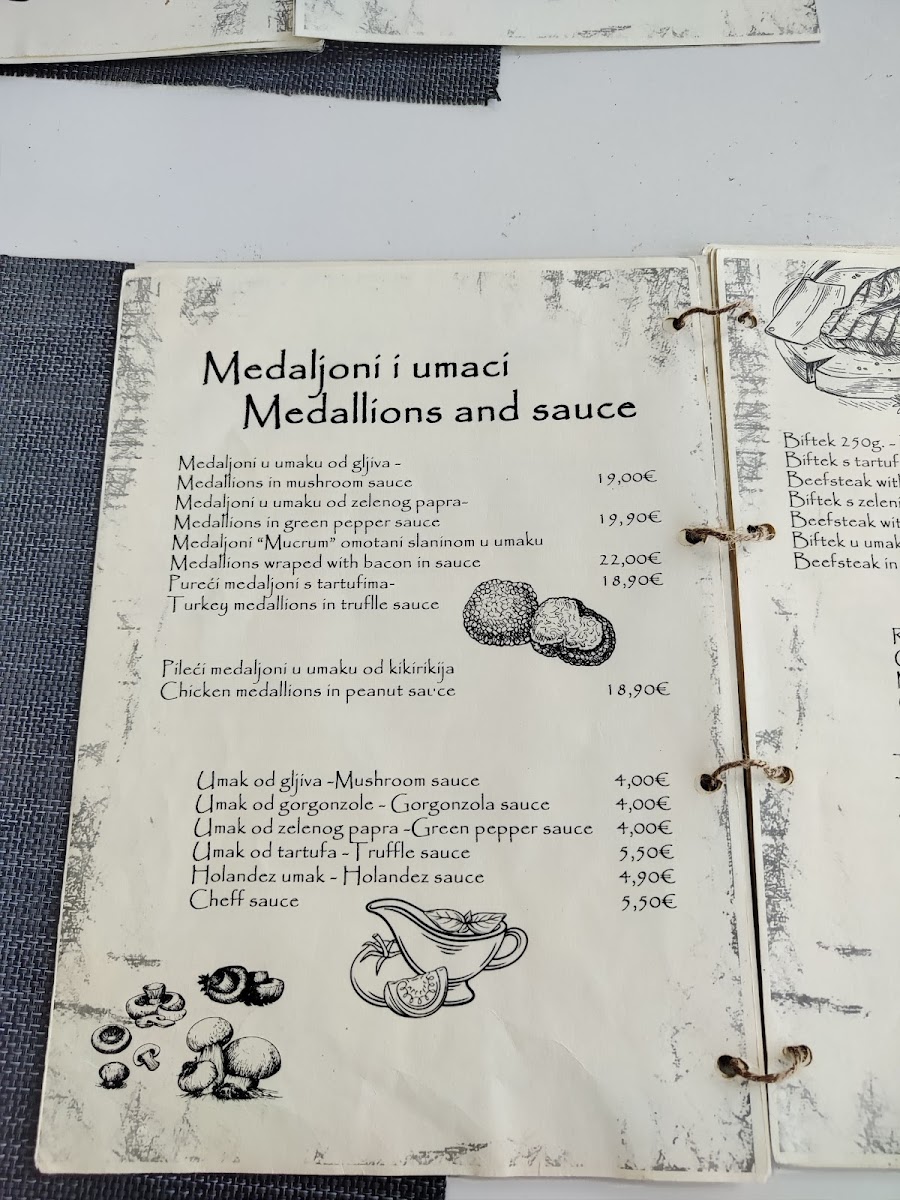 Medaljoni i umaci
Medallions and sauce
Medaljoni u umaku od gljiva -
Medallions in mushroom sauce 19,00€
Medaljoni u umaku od zelenog papra-
Medallions in green pepper sauce 19,90€
Medaljoni "Mucrum" omotani slaninom u umaku
Medallions wraped with bacon in sauce 22,00€
Pureći medaljoni s tartufima- 18,90€
Turkey medallions in truflle sauce
Pileći medaljoni u umaku od kikirikija
Chicken medallions in peanut sauce 18,90€
Umak od gljiva -Mushroom sauce 4,00€
Umak od gorgonzole - Gorgonzola sauce 4,00€
Umak od zelenog papra -Green pepper sauce 4,00€
Umak od tartufa - Truffle sauce 5,50€
Holandez umak - Holandez sauce 4,90€
Cheff sauce 5,50€
Biftek 250g. -
Biftek s
Beefsteak
Biftek s
Beefsteak
Biftek u
Beefsteak in